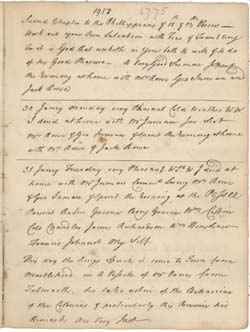 1775
Second Chapter to the Philippians y 12th & 13th Verses -
Work out your own Salvation with Fear & Trembling
for it is God that worketh in you both to will & to do
of his Good Pleasure - A very Good Sermon I Spent
the evening at home with
Jack Rowe
30 Jany Monday very Pleasant Cold Weather W W
I dined at home with Mr Inman
Mrs Rowe & Geo Inman & spent the evening at home
with Mrs Rowe & Jack Rowe
31 Jany Tuesday very Pleasant W W I dined at
home with Mr Inman Mrs Rowe
& Geo Inman & spent the evening at the Possee
Present
Colo Chandler James Richardson
Francis Johonnot My Self.
This day the Kings Speech is come to Town from
Marblehead, in a Vessell of Mr Jones from
Falmouth, he takes notice of the Behaviour
of the Colonies & particularly this Province his
Remarks are very Just